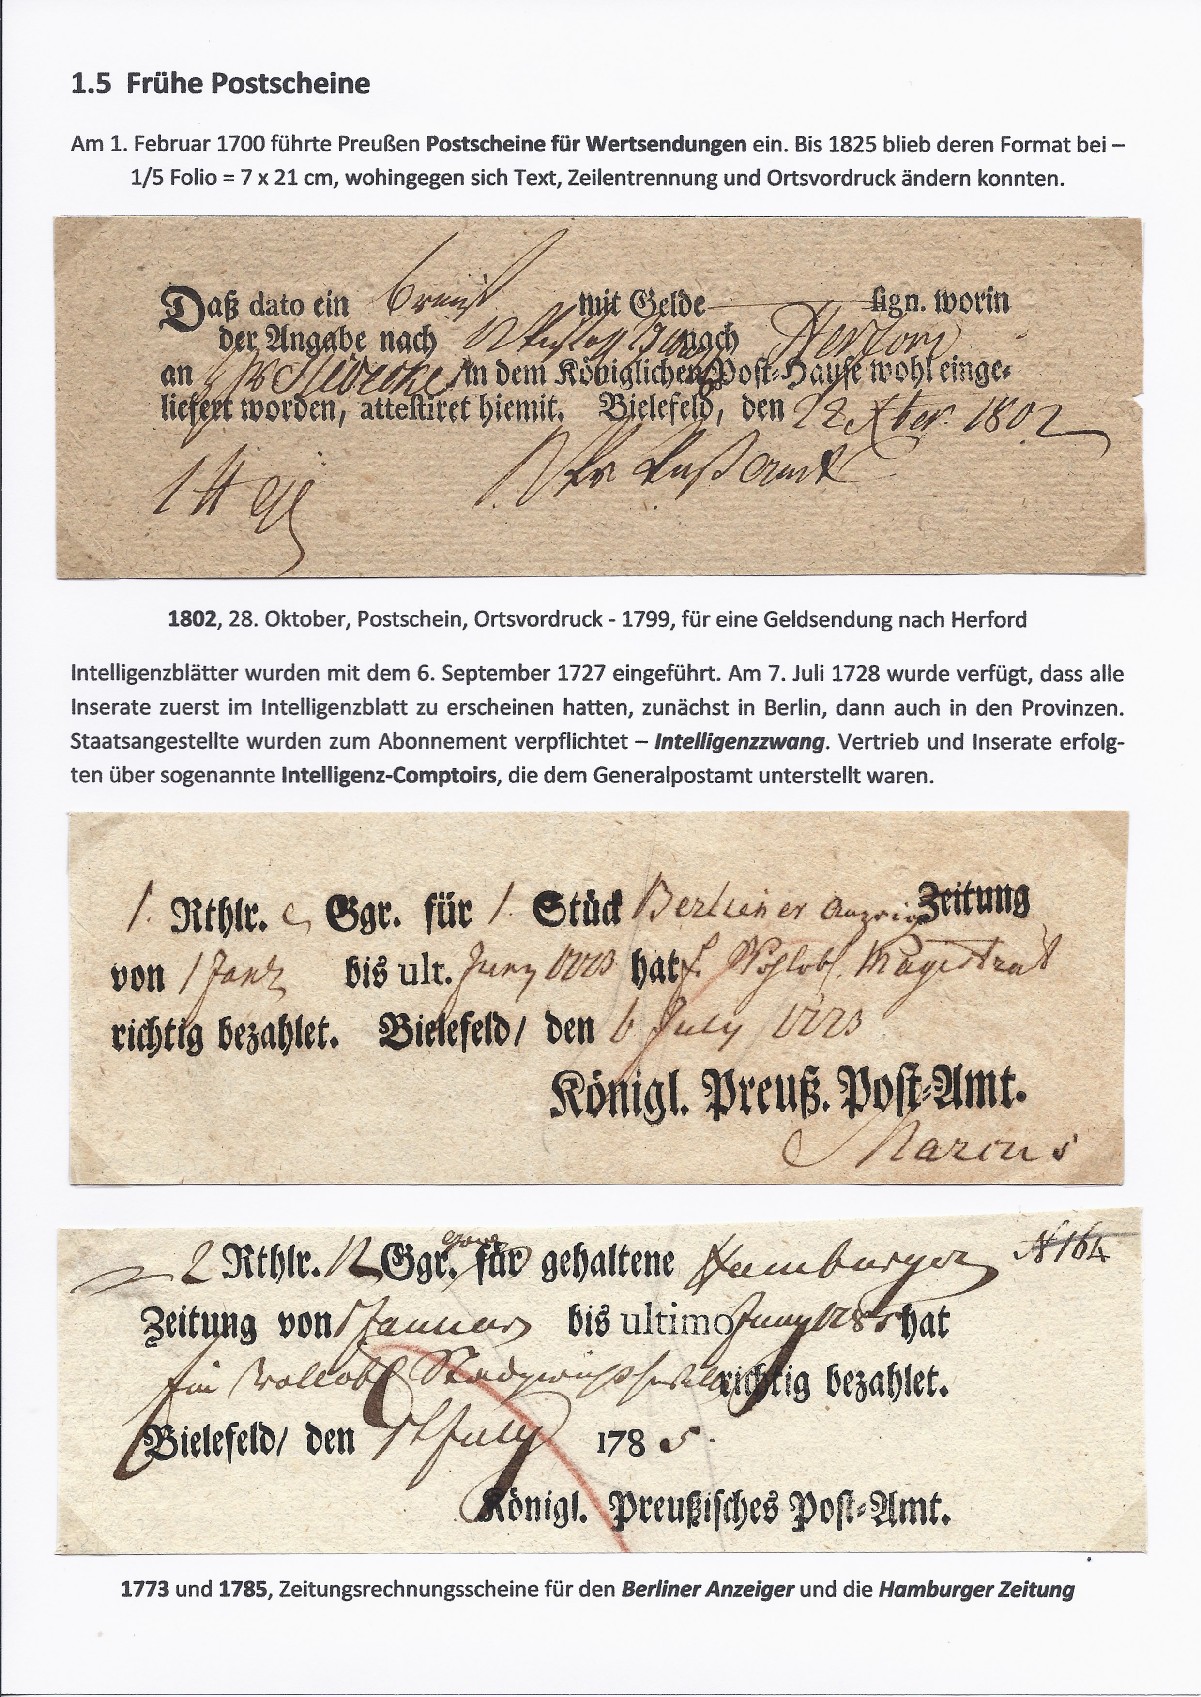 1.5 Frühe Postscheine
Am 1. Februar 1700 führte Preußen Postscheine für Wertsendungen ein. Bis 1825 blieb deren Format bei –
1/5 Folio = 7 x 21 cm, wohingegen sich Text, Zeilentrennung und Ortsvordruck ändern konnten.
Daß dato ein mit Gelde sign. worin
der Angabe nach nach Herford
an in dem Königlichen Post-Hause wohl einge-
liefert worden, attestiret hiemit. Bielefeld, den 28 Xber. 1802
1802, 28. Oktober, Postschein, Ortsvordruck - 1799, für eine Geldsendung nach Herford
Intelligenzblätter wurden mit dem 6. September 1727 eingeführt. Am 7. Juli 1728 wurde verfügt, dass alle
Inserate zuerst im Intelligenzblatt zu erscheinen hatten, zunächst in Berlin, dann auch in den Provinzen.
Staatsangestellte wurden zum Abonnement verpflichtet – Intelligenzzwang. Vertrieb und Inserate erfolg-
ten über sogenannte Intelligenz-Comptoirs, die dem Generalpostamt unterstellt waren.
1. Rthlr. Ggr. für 1. Stück Berliner Zeitung
von 1 Jan bis ult. Juny 1773 hat Magistrat
richtig bezahlet. Bielefeld/ den 6 July 1773
Königl. Preuß. Post-Amt.
Marcus
2 Rthlr. 12 Ggr. für gehaltene Hamburger № 164
Zeitung von 1 Januar bis ultimo Juny 1785 hat
richtig bezahlet.
Bielefeld/ den July 1785.
Königl. Preußisches Post-Amt.
1773 und 1785, Zeitungsrechnungsscheine für den Berliner Anzeiger und die Hamburger Zeitung